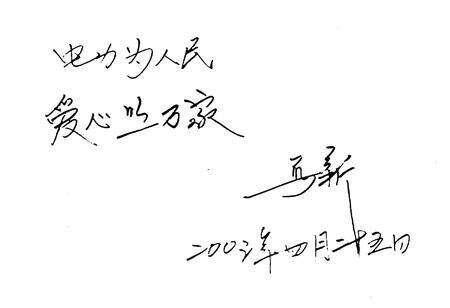 电力为人民
爱心照万家
二00三年四月二十五日